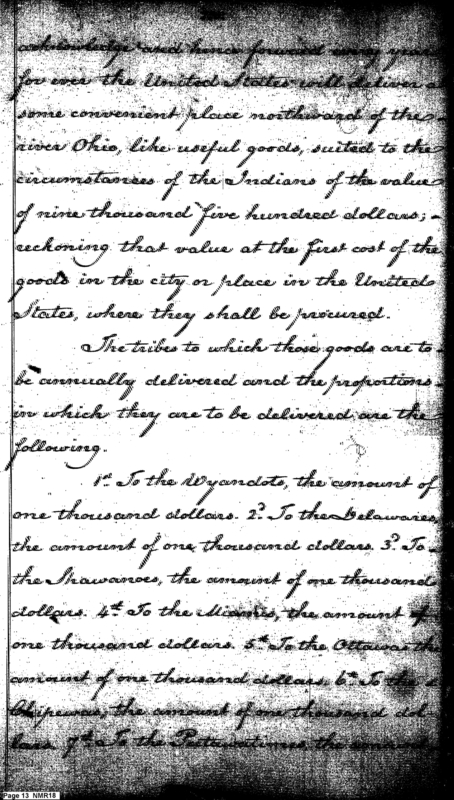 acknowledge and hence forward every year
for ever the United States will deliver at
some convenient place northward of the
river Ohio, like useful goods, suited to the
circumstances of the Indians of the value
of nine thousand five hundred dollars; -
reckoning that value at the first cost of the
goods in the city or place in the United
States, where they shall be procured.
The tribes to which those goods are to
be annually delivered and the proportions
in which they are to be delivered are the
following.
1st To the Wyandots, the amount of
one thousand dollars. 2d. To the Delawares,
the amount of one thousand dollars. 3d. To
the Shawanoes, the amount of one thousand
dollars. 4th To the Miamis, the amount of
one thousand dollars. 5th To the Ottawas the
amount of one thousand dollars. 6th To the
Chipewas, the amount of one thousand dol-
lars. 7th To the Putawatimes, the amount
Page 13 NMR18